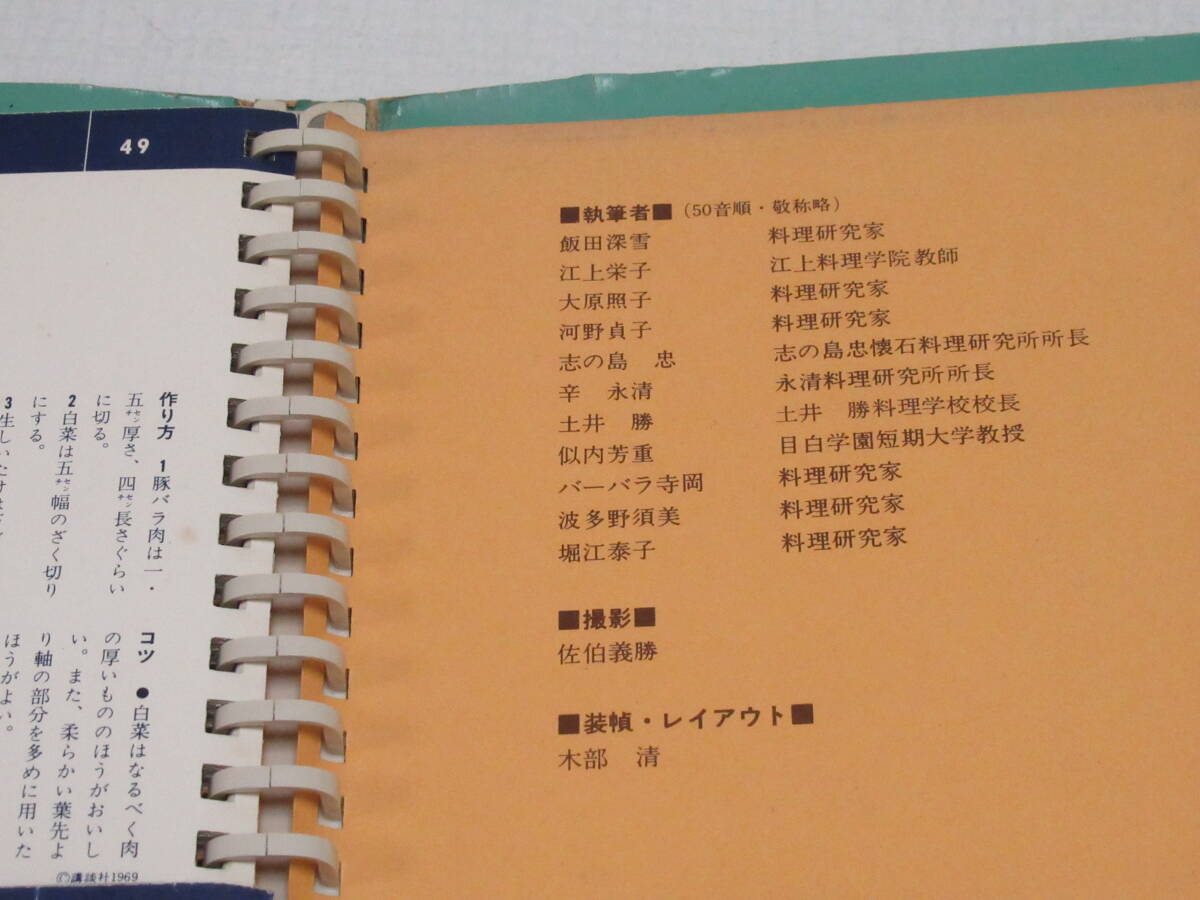 49
作り方 1豚バラ肉は一・
五チセン厚さ、四チセン長さぐらい
に切る。
2白菜は五チセン幅のざく切り
にする。
コツ ●白菜はなるべく肉
の厚いもののほうがおいし
い。また、柔らかい葉先よ
り軸の部分を多めに用いた
ほうがよい。
©講談社1969
■執筆者■(50音順・敬称略)
飯田深雪 料理研究家
江上栄子 江上料理学院教師
大原照子 料理研究家
河野貞子 料理研究家
志の島 忠 志の島忠懐石料理研究所所長
辛 永清 永清料理研究所所長
土井 勝 土井 勝料理学校校長
似内芳重 目白学園短期大学教授
バーバラ寺岡 料理研究家
波多野須美 料理研究家
堀江泰子 料理研究家
■撮影■
佐伯義勝
■装幀・レイアウト■
木部 清